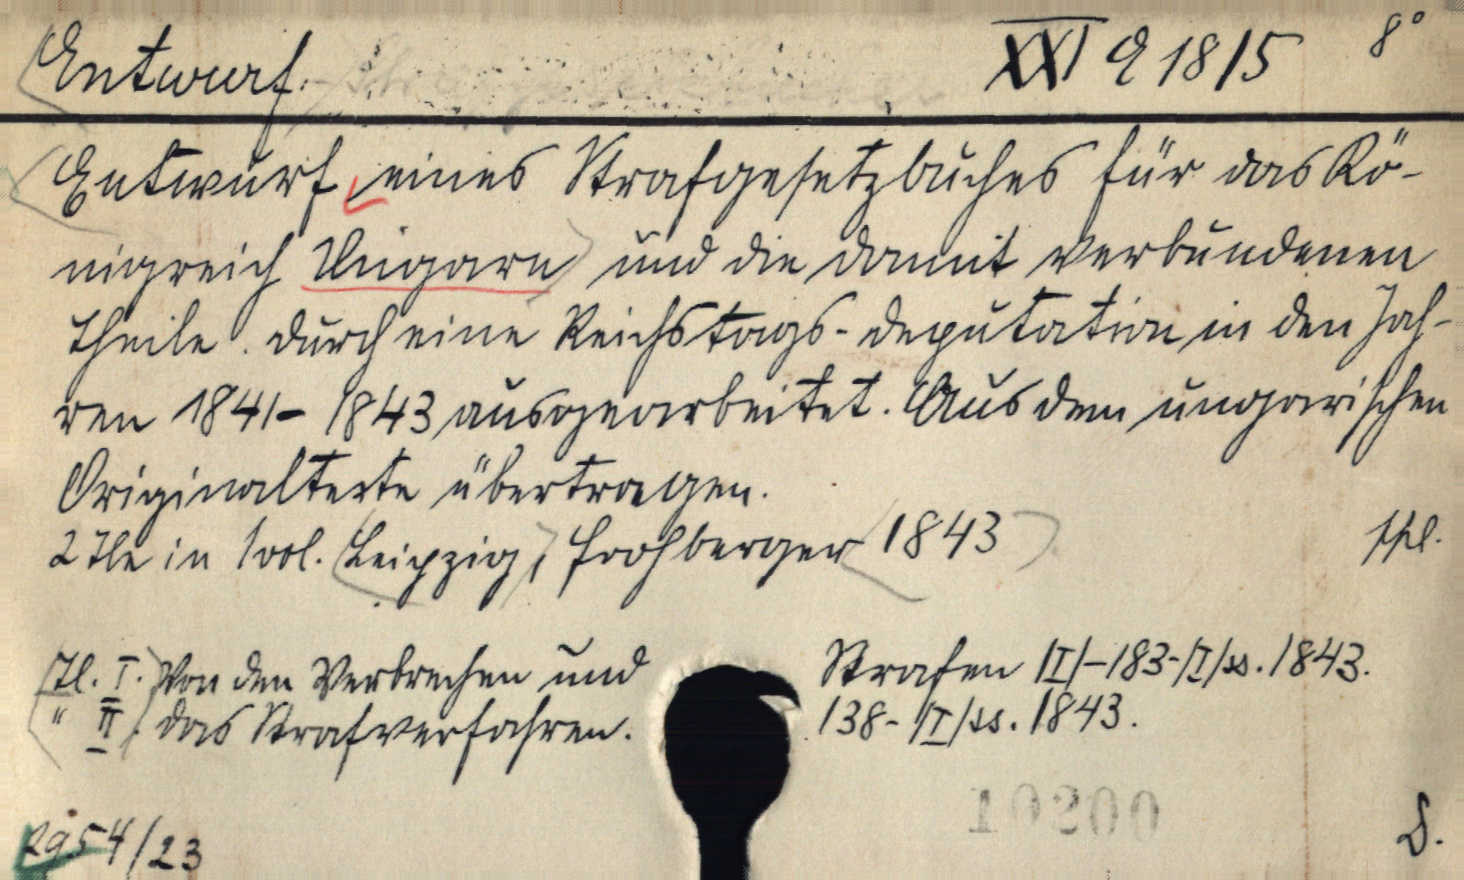 Entwurf. XXI Q 18/5 8°
Entwurf eines Strafgesetzbuches für das Kö-
nigreich Ungarn und die damit verbundenen
Theile. durch eine Reichstags-deputation in den Jah-
ren 1841-1843 ausgearbeitet. Aus dem ungarischen
Originaltexte übertragen.
2 Tle in 1 vol. Leipzig, Frohberger 1843
Tl. I. Von den Verbrechen und Strafen /II/-183-/I/ss. 1843.
" II. das Strafverfahren. 138-/I/ss. 1843.
10200
2954/23